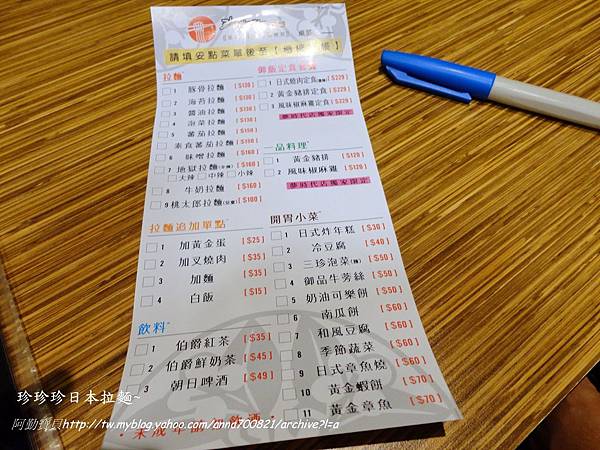 請填妥點菜單後至【櫃檯結帳】
拉麵
1 豚骨拉麵 [$130]
2 海苔拉麵 [$130]
3 醬油拉麵 [$130]
4 泡菜拉麵 [$130]
5 蕃茄拉麵 [$130]
素食蕃茄拉麵 [$130]
6 味噌拉麵 [$160]
7 地獄拉麵 [$160]
大辣 中辣 小辣
8 牛奶拉麵 [$160]
9 桃太郎拉麵(兒童) [$100]
拉麵追加單點
1 加黃金蛋 [$25]
2 加叉燒肉 [$35]
3 加麵 [$35]
4 白飯 [$15]
飲料
1 伯爵紅茶 [$35]
2 伯爵鮮奶茶 [$45]
3 朝日啤酒 [$49]
御飯定食套餐
1 日式燒肉定食 [$229]
2 黃金豬排定食 [$229]
3 風味椒麻雞定食 [$229]
夢時代店獨家限定
一品料理
1 黃金豬排 [$120]
2 風味椒麻雞 [$120]
夢時代店獨家限定
開胃小菜
1 日式炸年糕 [$30]
2 冷豆腐 [$40]
3 三珍泡菜(辣) [$50]
4 御品牛蒡絲 [$50]
5 奶油可樂餅 [$50]
6 南瓜餅 [$60]
7 和風豆腐 [$60]
8 季節蔬菜 [$60]
9 日式章魚燒 [$60]
10 黃金蝦餅 [$70]
11 黃金章魚 [$70]
珍珍珍日本拉麵~
阿勤寶貝http://tw.myblog.yahoo.com/anna700821/archive?l=a